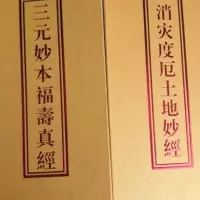 三元妙本福壽真經
消灾度厄土地妙經